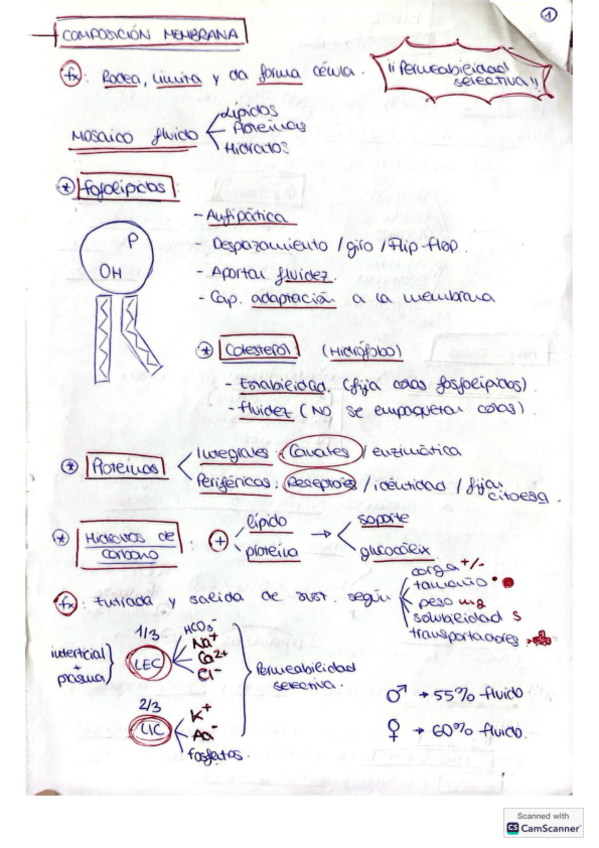 1
COMPOSICIÓN MEMBRANA
fx: Rodea, limita y da forma célula. ¡¡Permeabilidad
selectiva!!
Mosaico fluido
Lípidos
Proteínas
Hidratos
* Fosfolípidos:
P
OH
- Anfipática
- Desplazamiento / giro / Flip-flop.
- Aportan fluidez.
- Cap. adaptación a la membrana
* Colesterol: (Hidrófobo)
- Estabilidad. (fija colas fosfolípidos).
- Fluidez (NO se empaquetan colas)
* Proteínas
Integrales: Canales / enzimática
Periféricas: Receptores / identidad / fijar
citoesq.
* Hidratos de
carbono
+
lípido
proteína
→
soporte
glucocálix
fx: Entrada y salida de sust. según
carga +/-
tamaño
peso mg
solubilidad S
transportadores
intersticial
+
plasma
1/3
LEC
HCO3-
Na+
Ca2+
Cl-
2/3
LIC
K+
Ao-
fosfatos.
Permeabilidad
selectiva.
♂ → 55% fluido
♀ → 60% fluido.
Scanned with
CS CamScanner